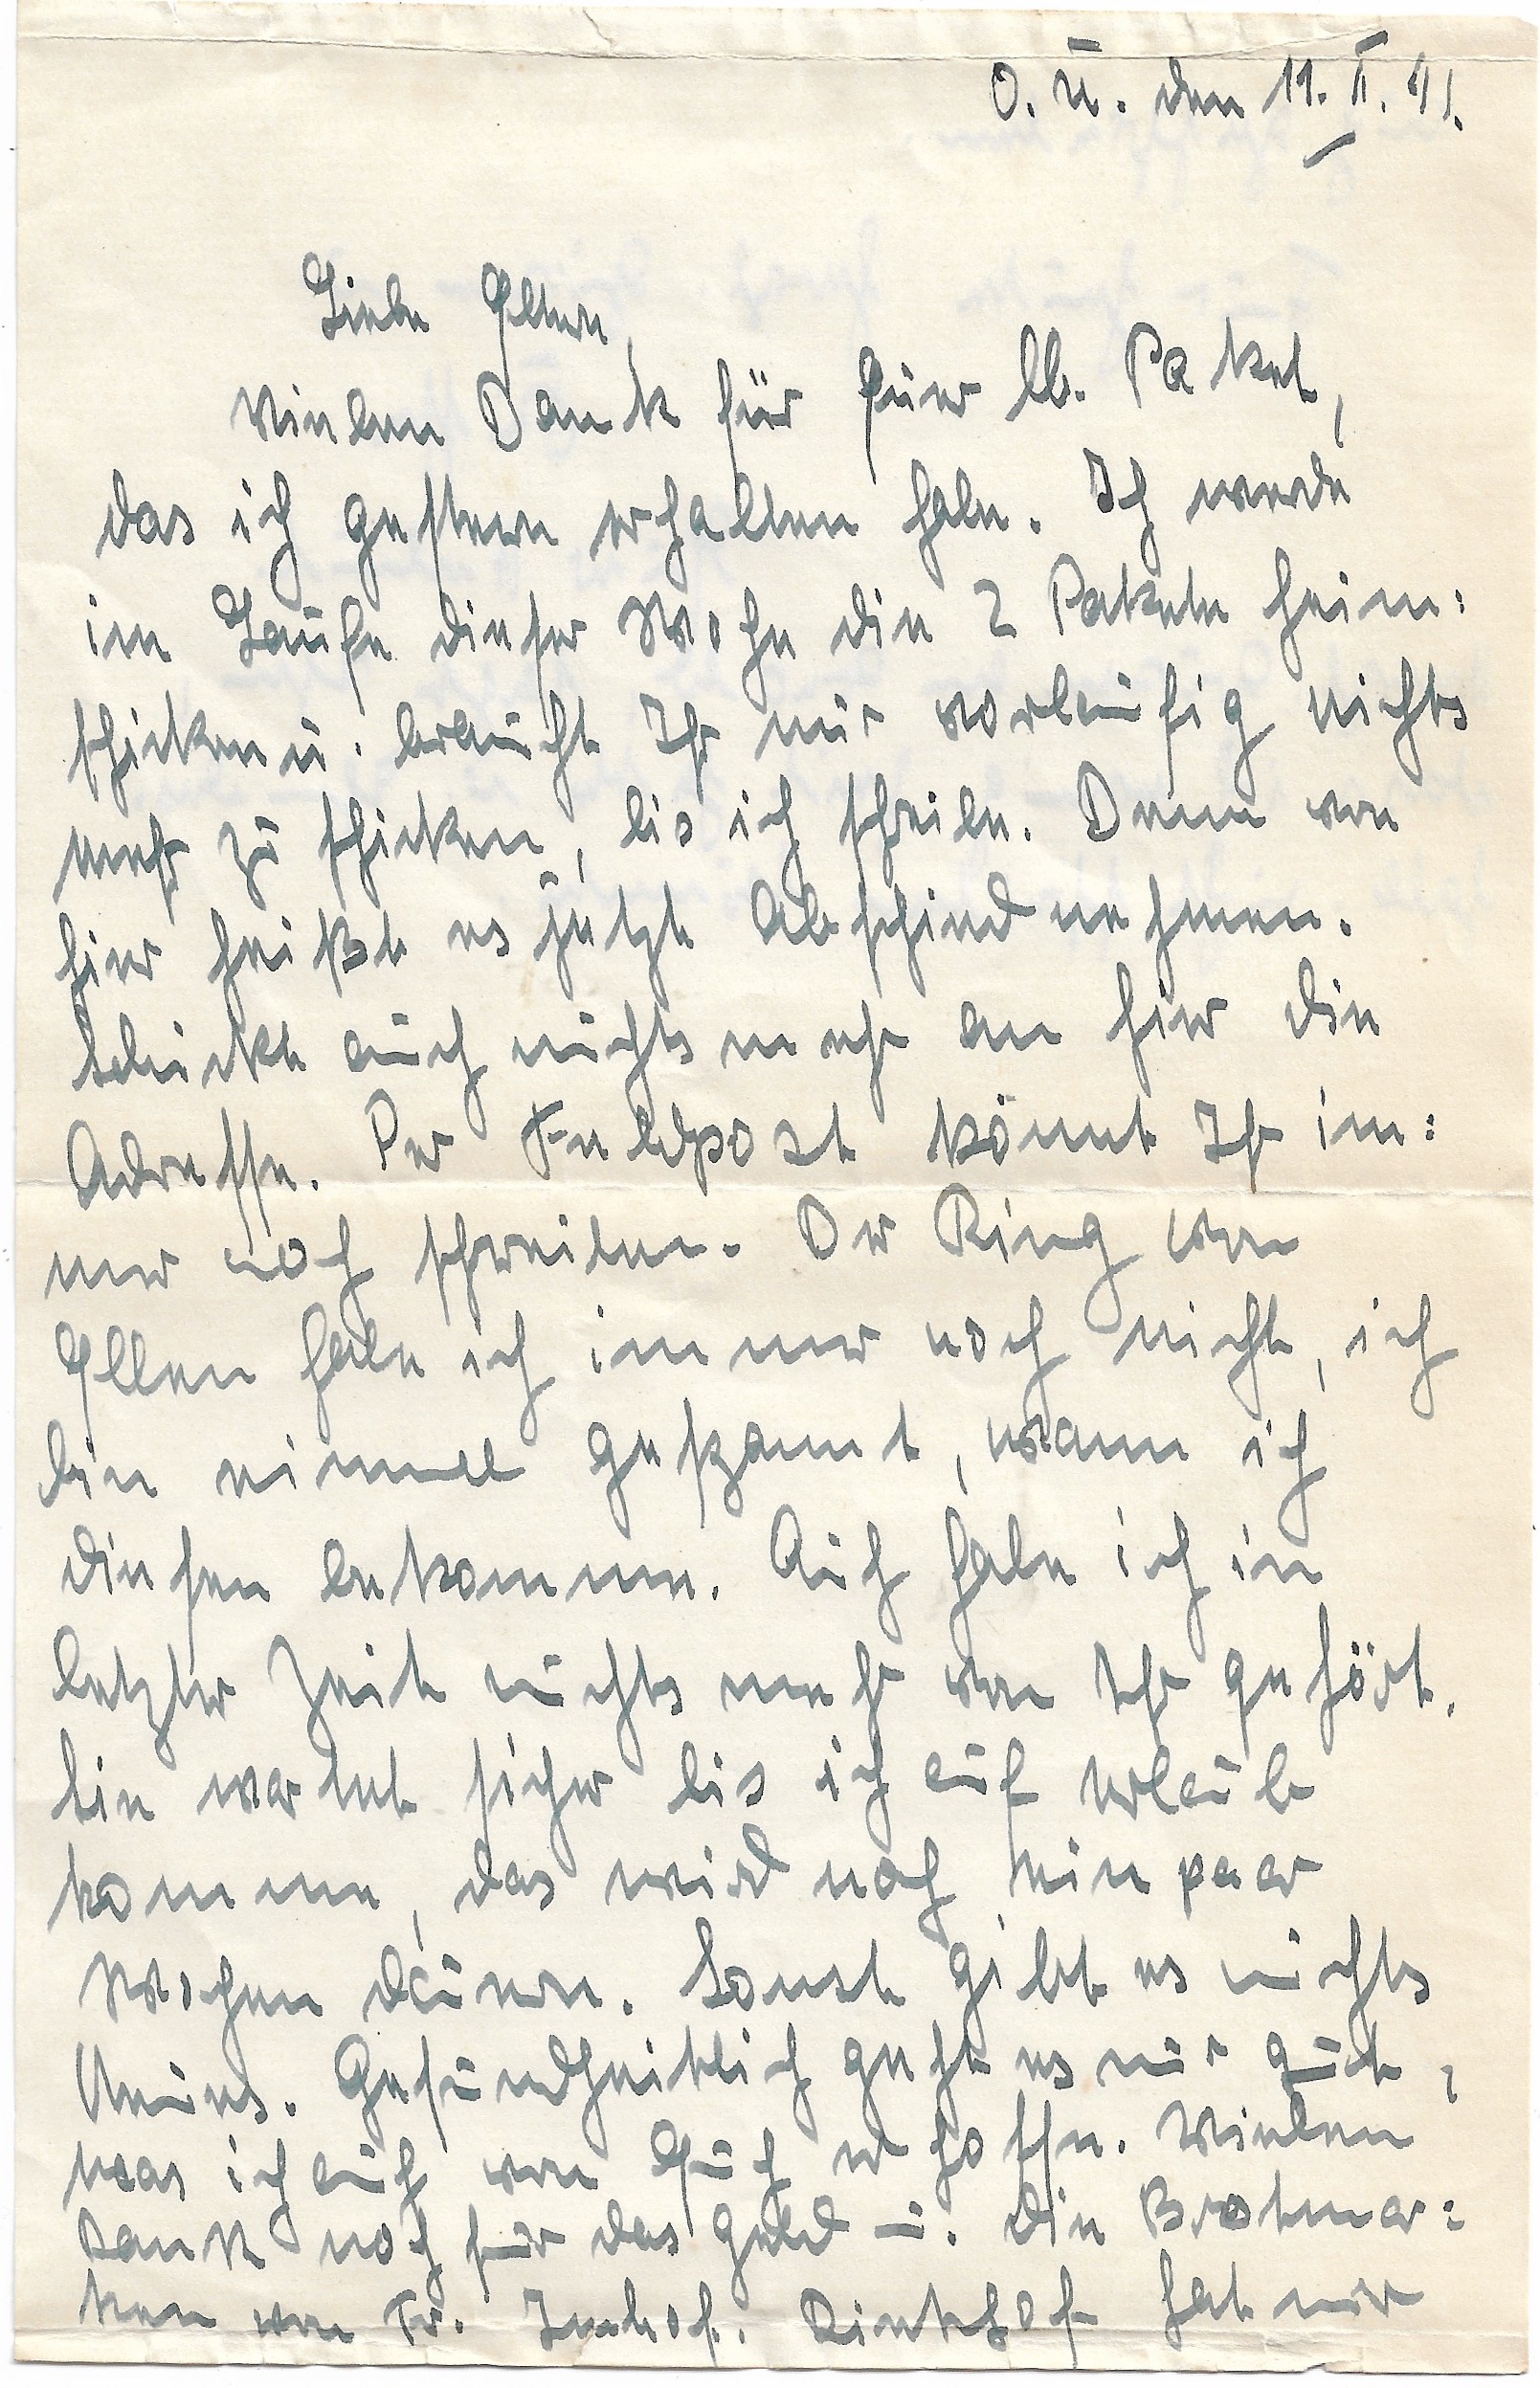 O. U. den 11. II. 41.
Liebe Eltern,
Vielen Dank für Euer lb. Paket,
das ich gestern erhalten habe. Ich werde
im Laufe dieser Woche die 2 Pakete heim:
schicken u. braucht Ihr mir vorläufig nichts
mehr zu schicken, bis ich schreibe. Denn von
hier heißt es jetzt Abschied nehmen.
Schickt auch nichts mehr an hier die
Adresse. Per Feldpost könnt Ihr im:
mer noch schreiben. Der Ring von
Ellen habe ich immer noch nicht, ich
bin einmal gespannt, wann ich
diesen bekomme. Auch habe ich in
letzter Zeit nichts mehr von Ihr gehört.
Sie wartet sicher bis ich auf Urlaub
komme, das wird noch ein paar
Wochen dauern. Sonst gibt es nichts
Neues. Gesundheitlich geht es mir gut,
was ich auch von Euch erhoffe. Vielen
Dank noch für das Geld u. die Brotmar:
ken von Fr. Imhof. hat mir